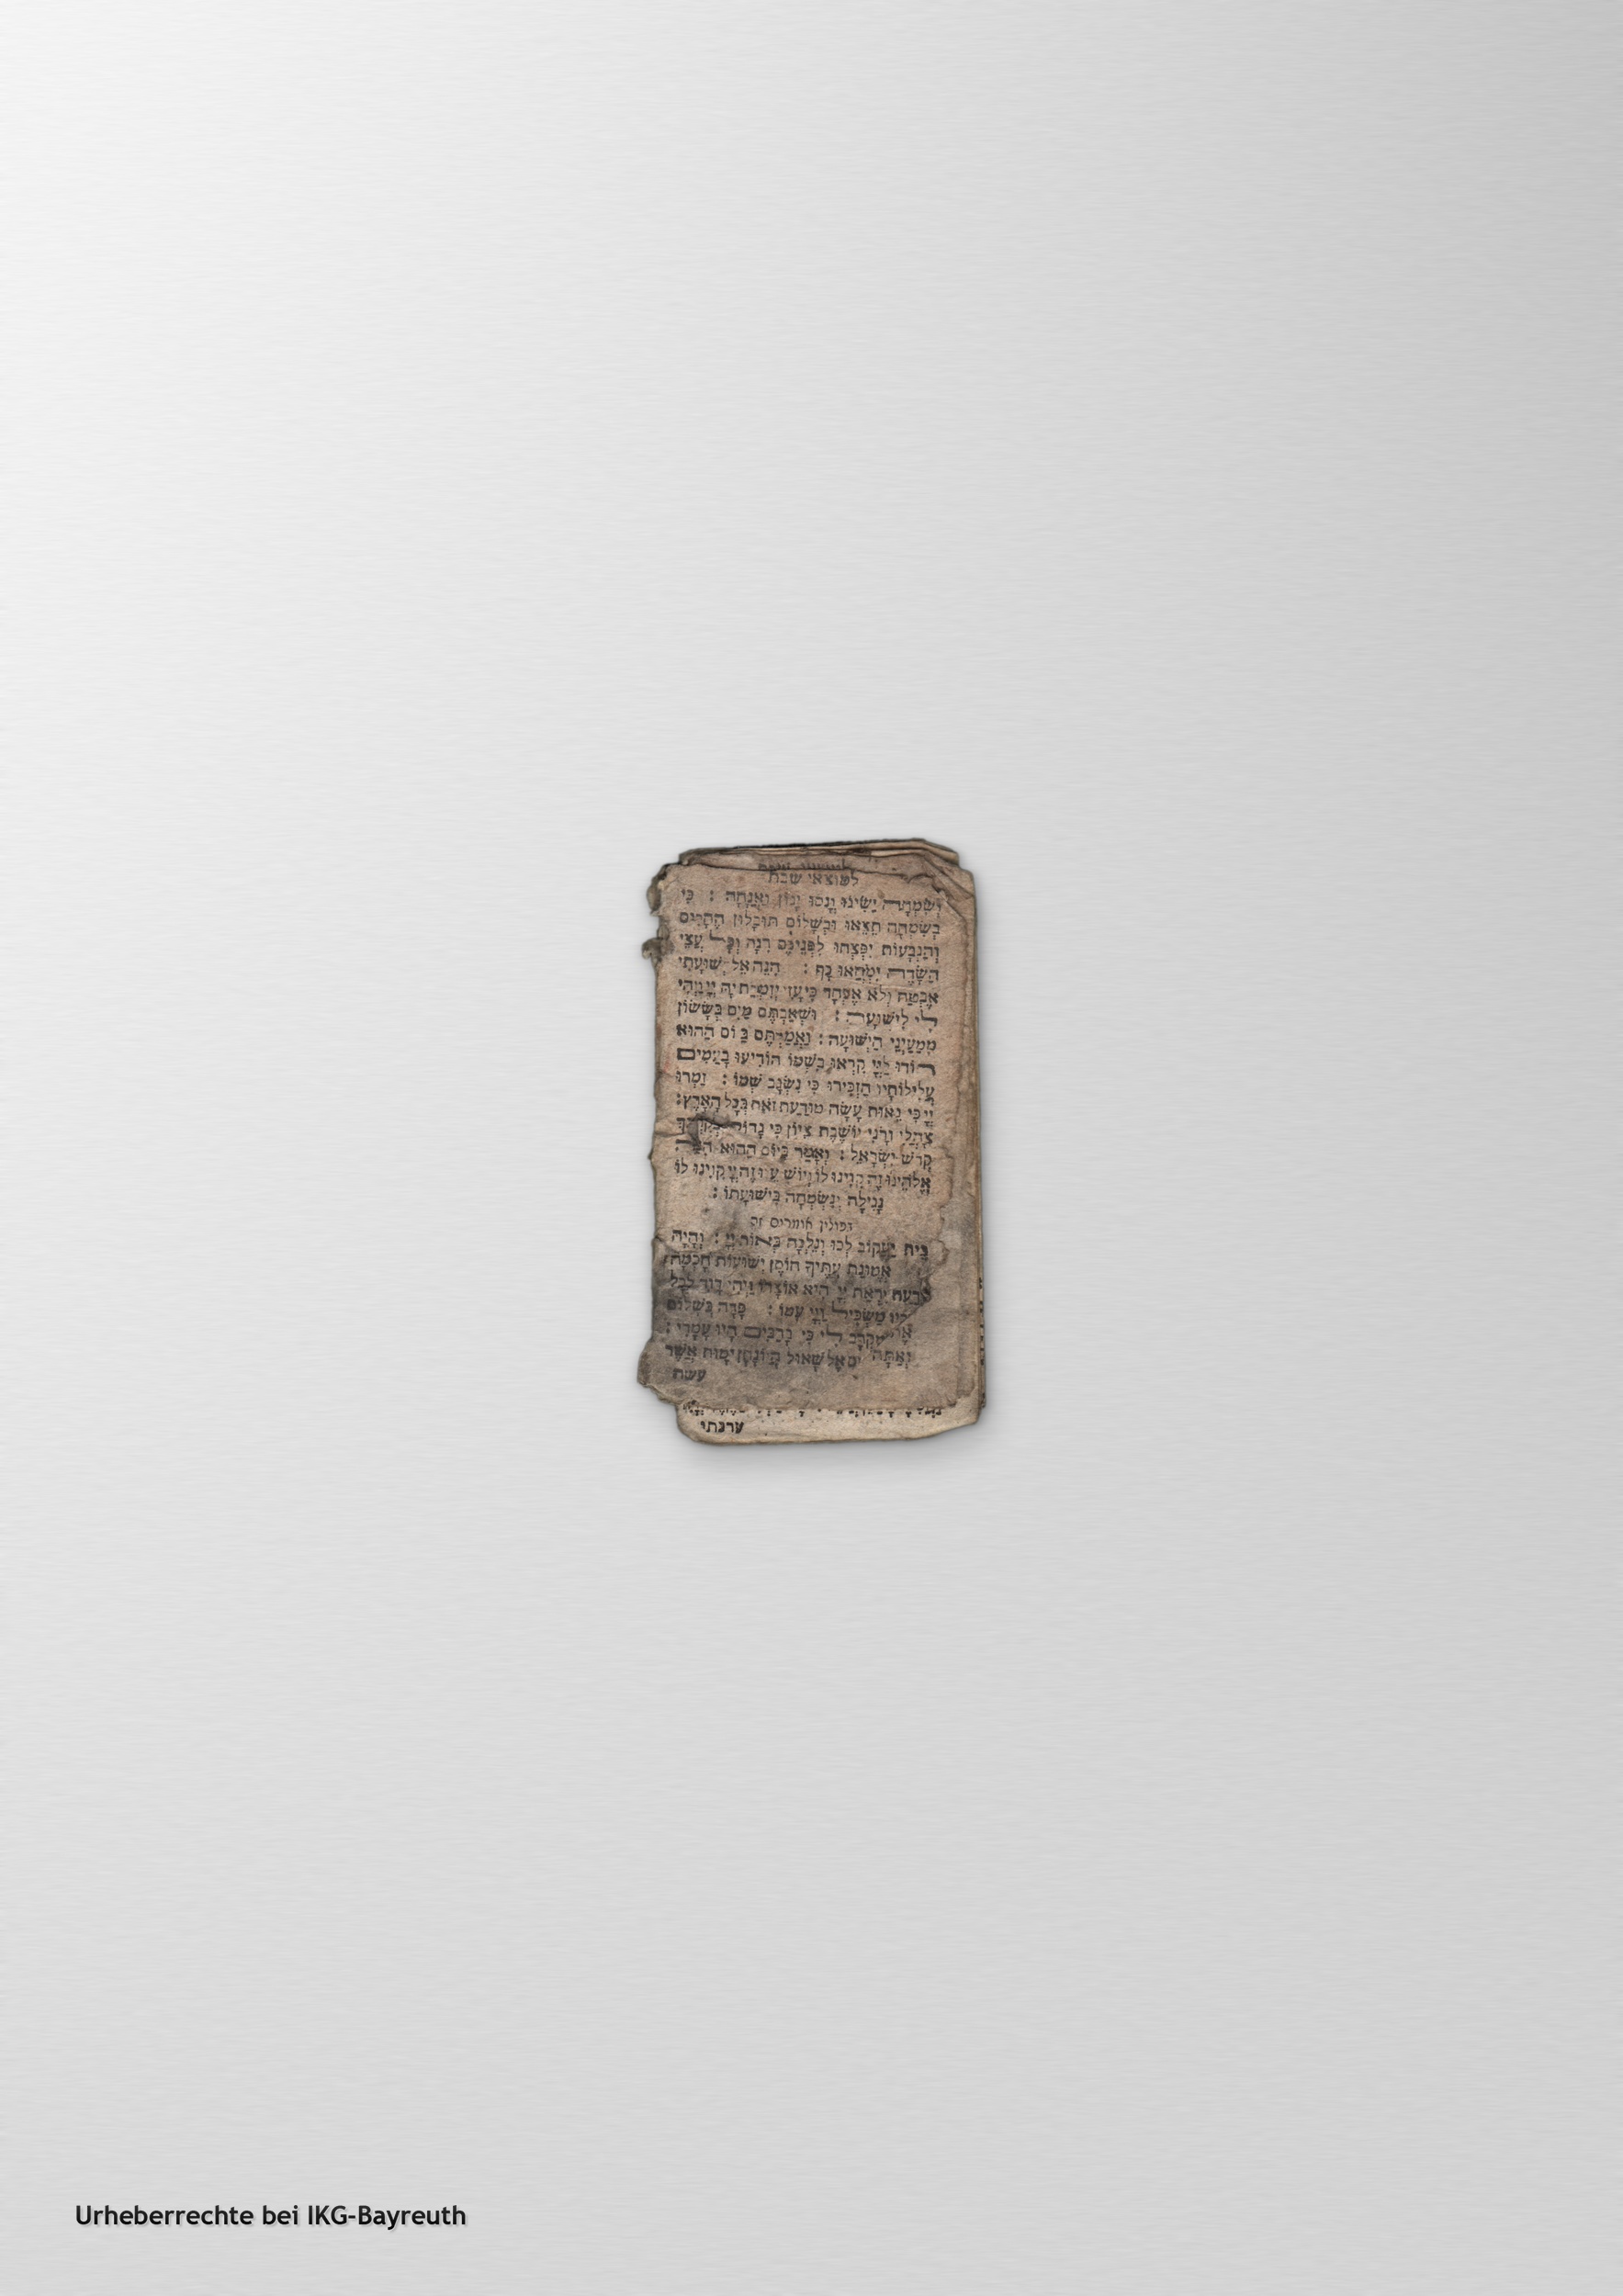 למוצאי שבת
וְשִׂמְחָה יַשִּׂיגוּ וְנָסוּ יָגוֹן וַאֲנָחָה : כִּי
בְשִׂמְחָה תֵצֵאוּ וּבְשָׁלוֹם תּוּבָלוּן הֶהָרִים
וְהַגְּבָעוֹת יִפְצְחוּ לִפְנֵיכֶם רִנָּה וְכָל עֲצֵי
הַשָּׂדֶה יִמְחֲאוּ כָף : הִנֵּה אֵל יְשׁוּעָתִי
אֶבְטַח וְלֹא אֶפְחָד כִּי עָזִּי וְזִמְרָת יָהּ יְיָ וַיְהִי
לִי לִישׁוּעָה : וּשְׁאַבְתֶּם מַיִם בְּשָׂשׂוֹן
מִמַּעַיְנֵי הַיְשׁוּעָה : וַאֲמַרְתֶּם בַּיּוֹם הַהוּא
הוֹדוּ לַיְיָ קִרְאוּ בִשְׁמוֹ הוֹדִיעוּ בָעַמִּים
עֲלִילוֹתָיו הַזְכִּירוּ כִּי נִשְׂגָּב שְׁמוֹ : זַמְּרוּ
יְיָ כִּי גֵאוּת עָשָׂה מוּדַעַת זֹאת בְּכָל הָאָרֶץ :
צַהֲלִי וָרֹנִּי יוֹשֶׁבֶת צִיּוֹן כִּי גָדוֹל בְּקִרְבֵּךְ
קְדוֹשׁ יִשְׂרָאֵל : וְאָמַר בַּיּוֹם הַהוּא הִנֵּה
אֱלֹהֵינוּ זֶה קִוִּינוּ לוֹ וְיוֹשִׁיעֵנוּ זֶה יְיָ קִוִּינוּ לוֹ
נָגִילָה וְנִשְׂמְחָה בִּישׁוּעָתוֹ :
בפולין אומרים זה
בֵּית יַעֲקֹב לְכוּ וְנֵלְכָה בְּאוֹר יְיָ : וְהָיָה
אֱמוּנַת עִתֶּיךָ חֹסֶן יְשׁוּעוֹת חָכְמַת
וָדַעַת יִרְאַת יְיָ הִיא אוֹצָרוֹ וַיְהִי דָוִד לְכָל
מַשְׂכִּיל וַיְיָ עִמּוֹ : פָּדָה בְשָׁלוֹם
מִקְּרָב לִי כִּי בְרַבִּים הָיוּ עִמָּדִי :
שָׁאוּל הֲיוֹנָתָן יָמוּת אֲשֶׁר
עשה
ערבתי
Urheberrechte bei IKG-Bayreuth